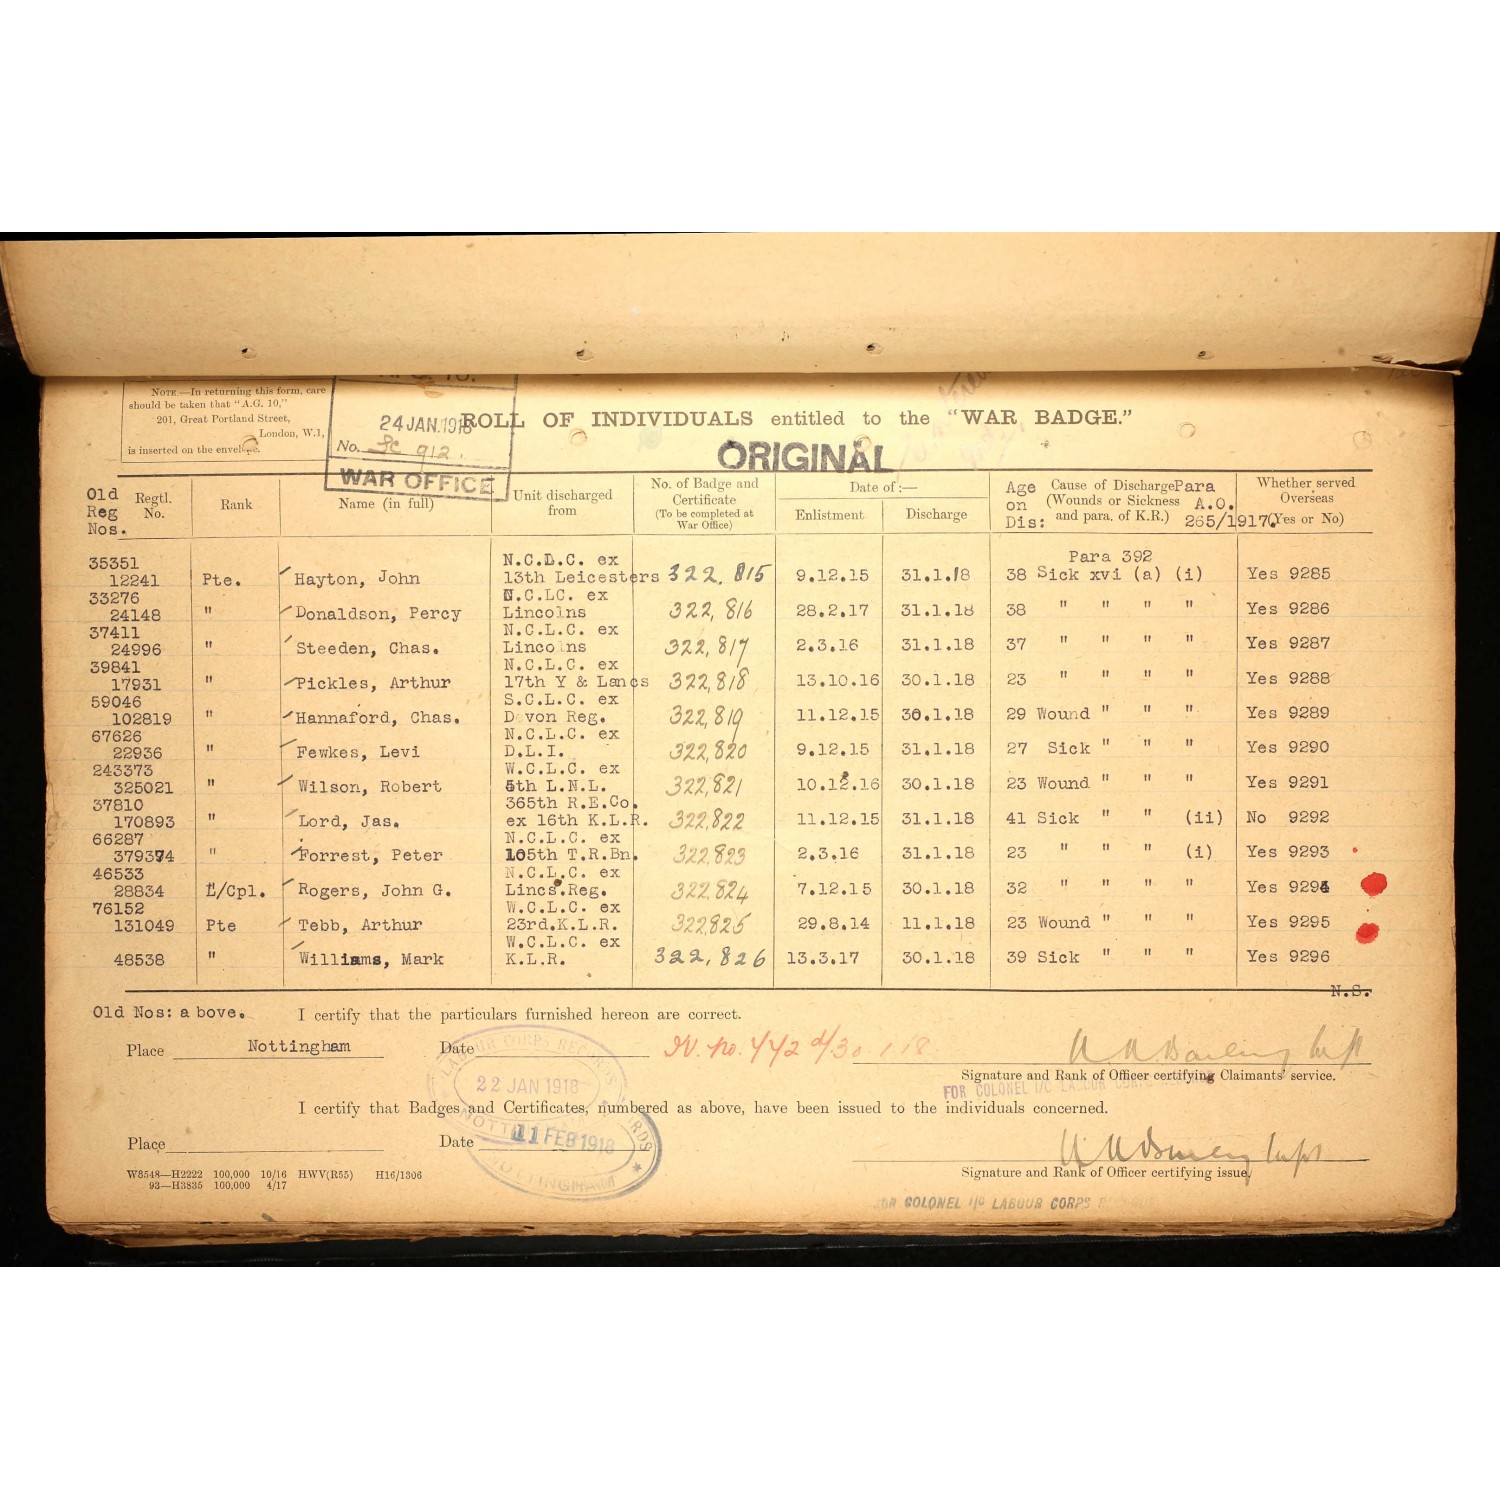 NOTE.—In returning this form, care
should be taken that "A.G. 10,"
201, Great Portland Street,
London, W.1,
is inserted on the envelope.
24 JAN. 1918
No. SC 912.
WAR OFFICE
ROLL OF INDIVIDUALS entitled to the "WAR BADGE."
ORIGINAL
Old Reg Nos. Regtl. No. Rank Name (in full) Unit discharged from No. of Badge and Certificate (To be completed at War Office) Date of :— Enlistment Discharge Age on Dis: Cause of Discharge (Wounds or Sickness and para. of K.R.) Para A.O. 265/1917. Whether served Overseas (Yes or No)
35351 N.C.L.C. ex Para 392
12241 Pte. Hayton, John 13th Leicesters 322,815 9.12.15 31.1.18 38 Sick xvi (a) (i) Yes 9285
33276 N.C.LC. ex
24148 " Donaldson, Percy Lincolns 322,816 28.2.17 31.1.18 38 " " " " Yes 9286
37411 N.C.L.C. ex
24996 " Steeden, Chas. Lincolns 322,817 2.3.16 31.1.18 37 " " " " Yes 9287
39841 N.C.L.C. ex
17931 " Pickles, Arthur 17th Y & Lancs 322,818 13.10.16 30.1.18 23 " " " " Yes 9288
59046 S.C.L.C. ex
102819 " Hannaford, Chas. Devon Reg. 322,819 11.12.15 30.1.18 29 Wound " " " Yes 9289
67626 N.C.L.C. ex
22936 " Fewkes, Levi D.L.I. 322,820 9.12.15 31.1.18 27 Sick " " " Yes 9290
243373 W.C.L.C. ex
325021 " Wilson, Robert 5th L.N.L. 322,821 10.12.16 30.1.18 23 Wound " " " Yes 9291
37810 365th R.E.Co.
170893 " Lord, Jas. ex 16th K.L.R. 322,822 11.12.15 31.1.18 41 Sick " " (ii) No 9292
66287 N.C.L.C. ex
379374 " Forrest, Peter 105th T.R.Bn. 322,823 2.3.16 31.1.18 23 " " " (i) Yes 9293
46533 N.C.L.C. ex
28834 L/Cpl. Rogers, John G. Lincs.Reg. 322,824 7.12.15 30.1.18 32 " " " " Yes 9294
76152 W.C.L.C. ex
131049 Pte Tebb, Arthur 23rd.K.L.R. 322,825 29.8.14 11.1.18 23 Wound " " " Yes 9295
W.C.L.C. ex
48538 " Williams, Mark K.L.R. 322,826 13.3.17 30.1.18 39 Sick " " " Yes 9296
N.S.
Old Nos: above. I certify that the particulars furnished hereon are correct.
Place Nottingham Date
LABOUR CORPS RECORDS
22 JAN 1918
NOTTINGHAM
N. no. 442 d/30.1.18.
Signature and Rank of Officer certifying Claimants' service.
FOR COLONEL I/C LABOUR CORPS
I certify that Badges and Certificates, numbered as above, have been issued to the individuals concerned.
Place Date
11 FEB 1918
NOTTINGHAM
Signature and Rank of Officer certifying issue.
FOR COLONEL I/C LABOUR CORPS
W8548—H2222 100,000 10/16 HWV(R55) H16/1306
93—H3835 100,000 4/17